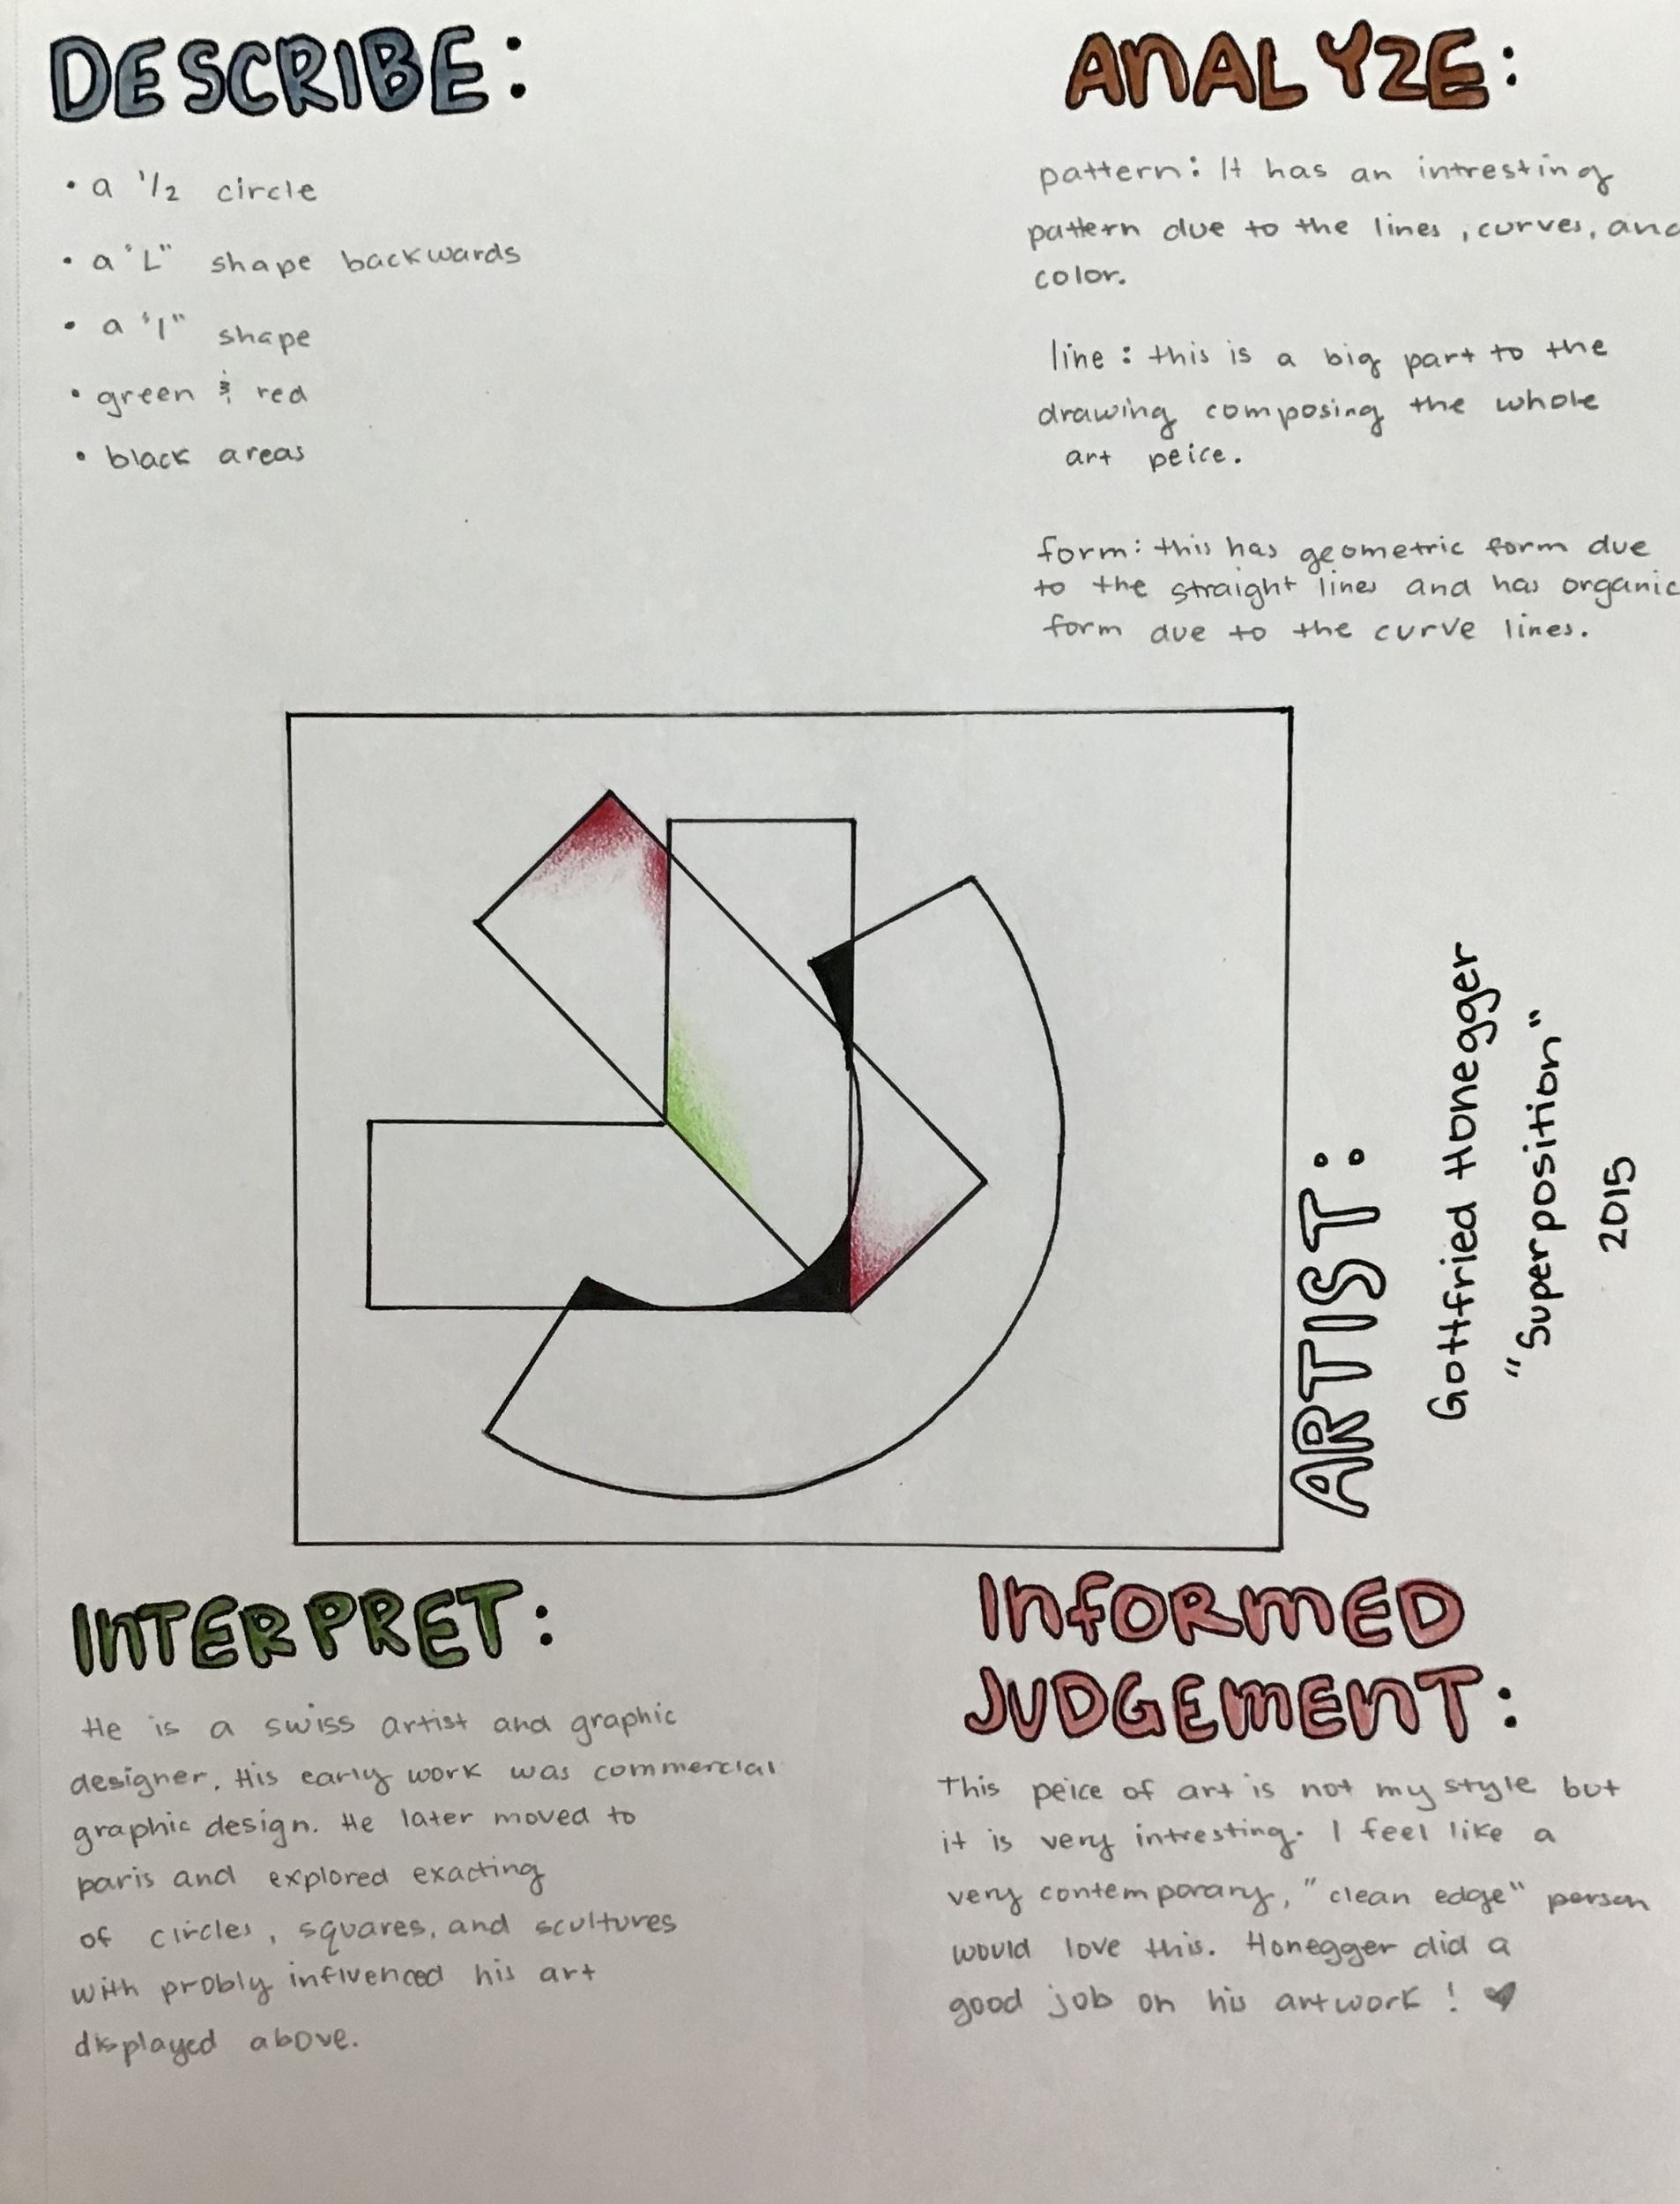 DESCRIBE:
• a 1/2 circle
• a "L" shape backwards
• a "I" shape
• green & red
• black areas
ANALYZE:
pattern: It has an intresting
pattern due to the lines, curves, and
color.
line: this is a big part to the
drawing composing the whole
art peice.
form: this has geometric form due
to the straight lines and has organic
form due to the curve lines.
ARTIST:
Gottfried Honegger
"Superposition"
2015
INTERPRET:
He is a swiss artist and graphic
designer. His early work was commercial
graphic design. He later moved to
paris and explored exacting
of circles, squares, and scultures
with probly influenced his art
displayed above.
INFORMED
JUDGEMENT:
This peice of art is not my style but
it is very intresting. I feel like a
very contemporary, "clean edge" person
would love this. Honegger did a
good job on his artwork! ♥